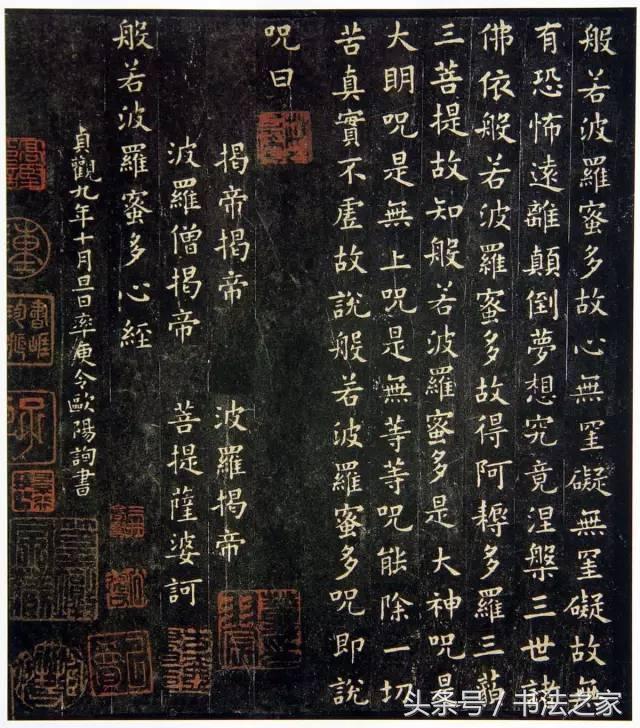 般若波羅蜜多故心無罣礙無罣礙故無
有恐怖遠離顛倒夢想究竟涅槃三世諸
佛依般若波羅蜜多故得阿耨多羅三藐
三菩提故知般若波羅蜜多是大神呪是
大明呪是無上呪是無等等呪能除一切
苦真實不虛故說般若波羅蜜多呪即說
呪曰
揭帝揭帝 波羅揭帝
波羅僧揭帝 菩提薩婆訶
般若波羅蜜多心經
貞觀九年十月旦日率更令歐陽詢書
头条号 / 书法之家